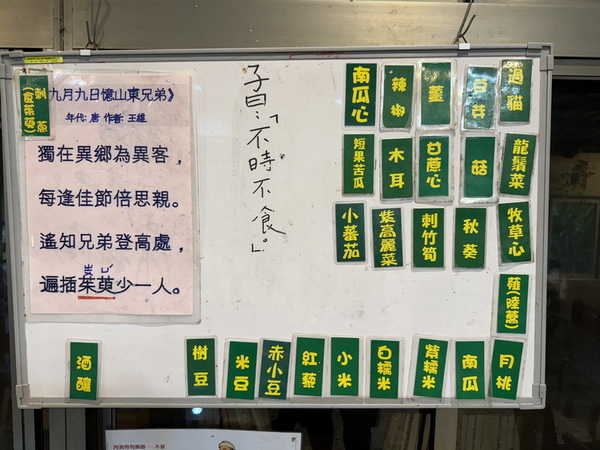 刺蔥
(食茱萸)
九月九日憶山東兄弟》
年代: 唐 作者: 王維
獨在異鄉為異客，
每逢佳節倍思親。
遙知兄弟登高處，
遍插茱萸少一人。
子曰:「不時不食。」
南瓜心
辣椒
薑
過貓
短果苦瓜
木耳
甘蔗心
菇
龍鬚菜
小蕃茄
紫高麗菜
刺竹筍
秋葵
牧草心
薤(陸蕎)
酒釀
樹豆
米豆
赤小豆
紅藜
小米
白糯米
紫糯米
南瓜
月桃